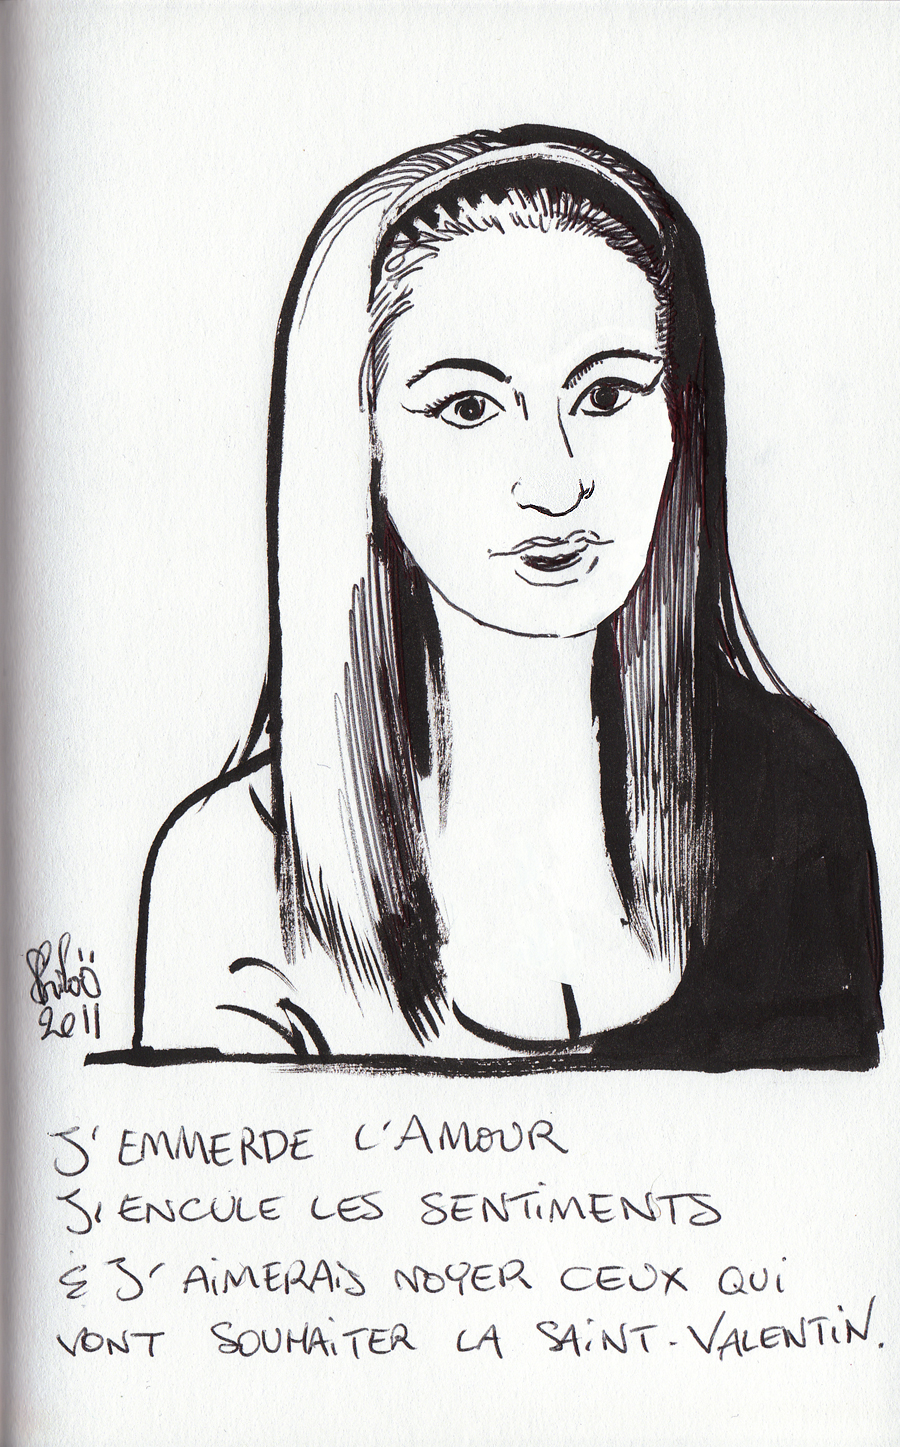 2011
J'EMMERDE L'AMOUR
J'ENCULE LES SENTIMENTS
& J'AIMERAIS NOYER CEUX QUI
VONT SOUHAITER LA SAINT-VALENTIN.